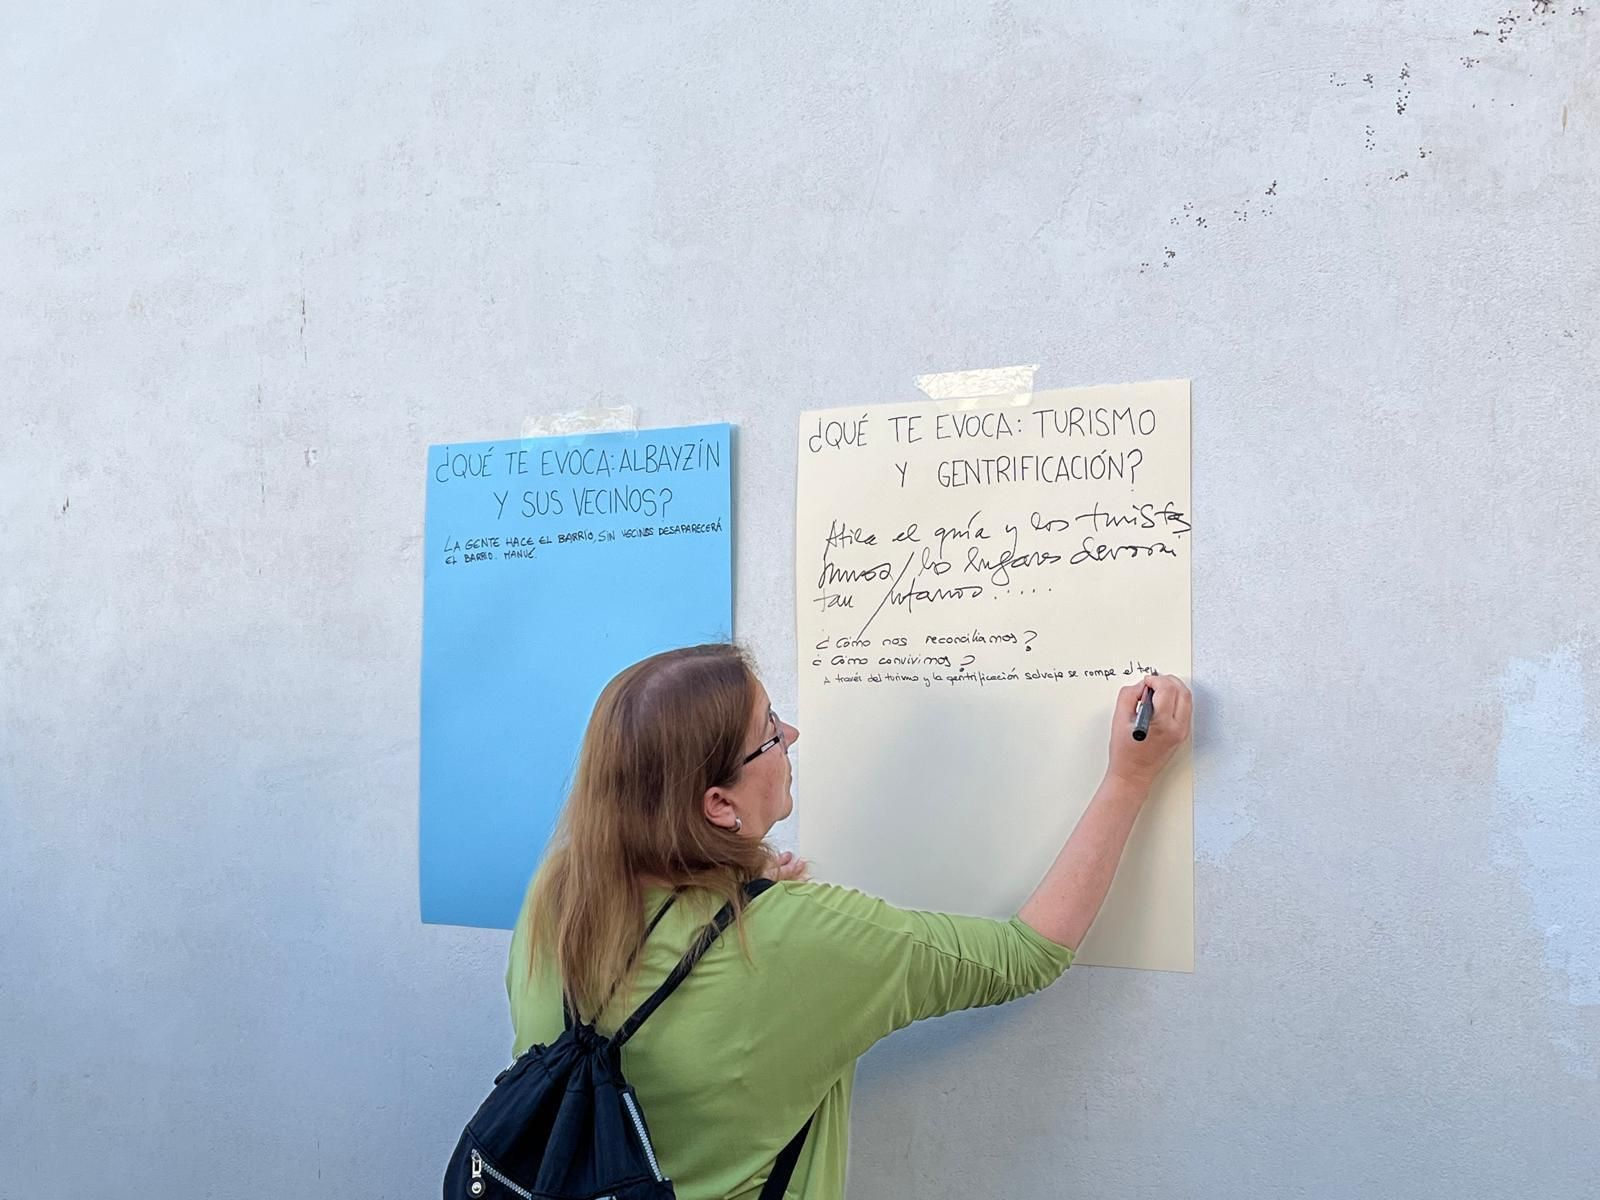 ¿QUÉ TE EVOCA: ALBAYZÍN
Y SUS VECINOS?
LA GENTE HACE EL BARRIO, SIN VECINOS DESAPARECERÁ
EL BARRIO. MANUEL.
¿QUÉ TE EVOCA: TURISMO
Y GENTRIFICACIÓN?
el guía y los turistas
los lugares
tan
¿Cómo nos reconciliamos?
¿Cómo convivimos?
A través del turismo y la gentrificación salvaje se rompe el